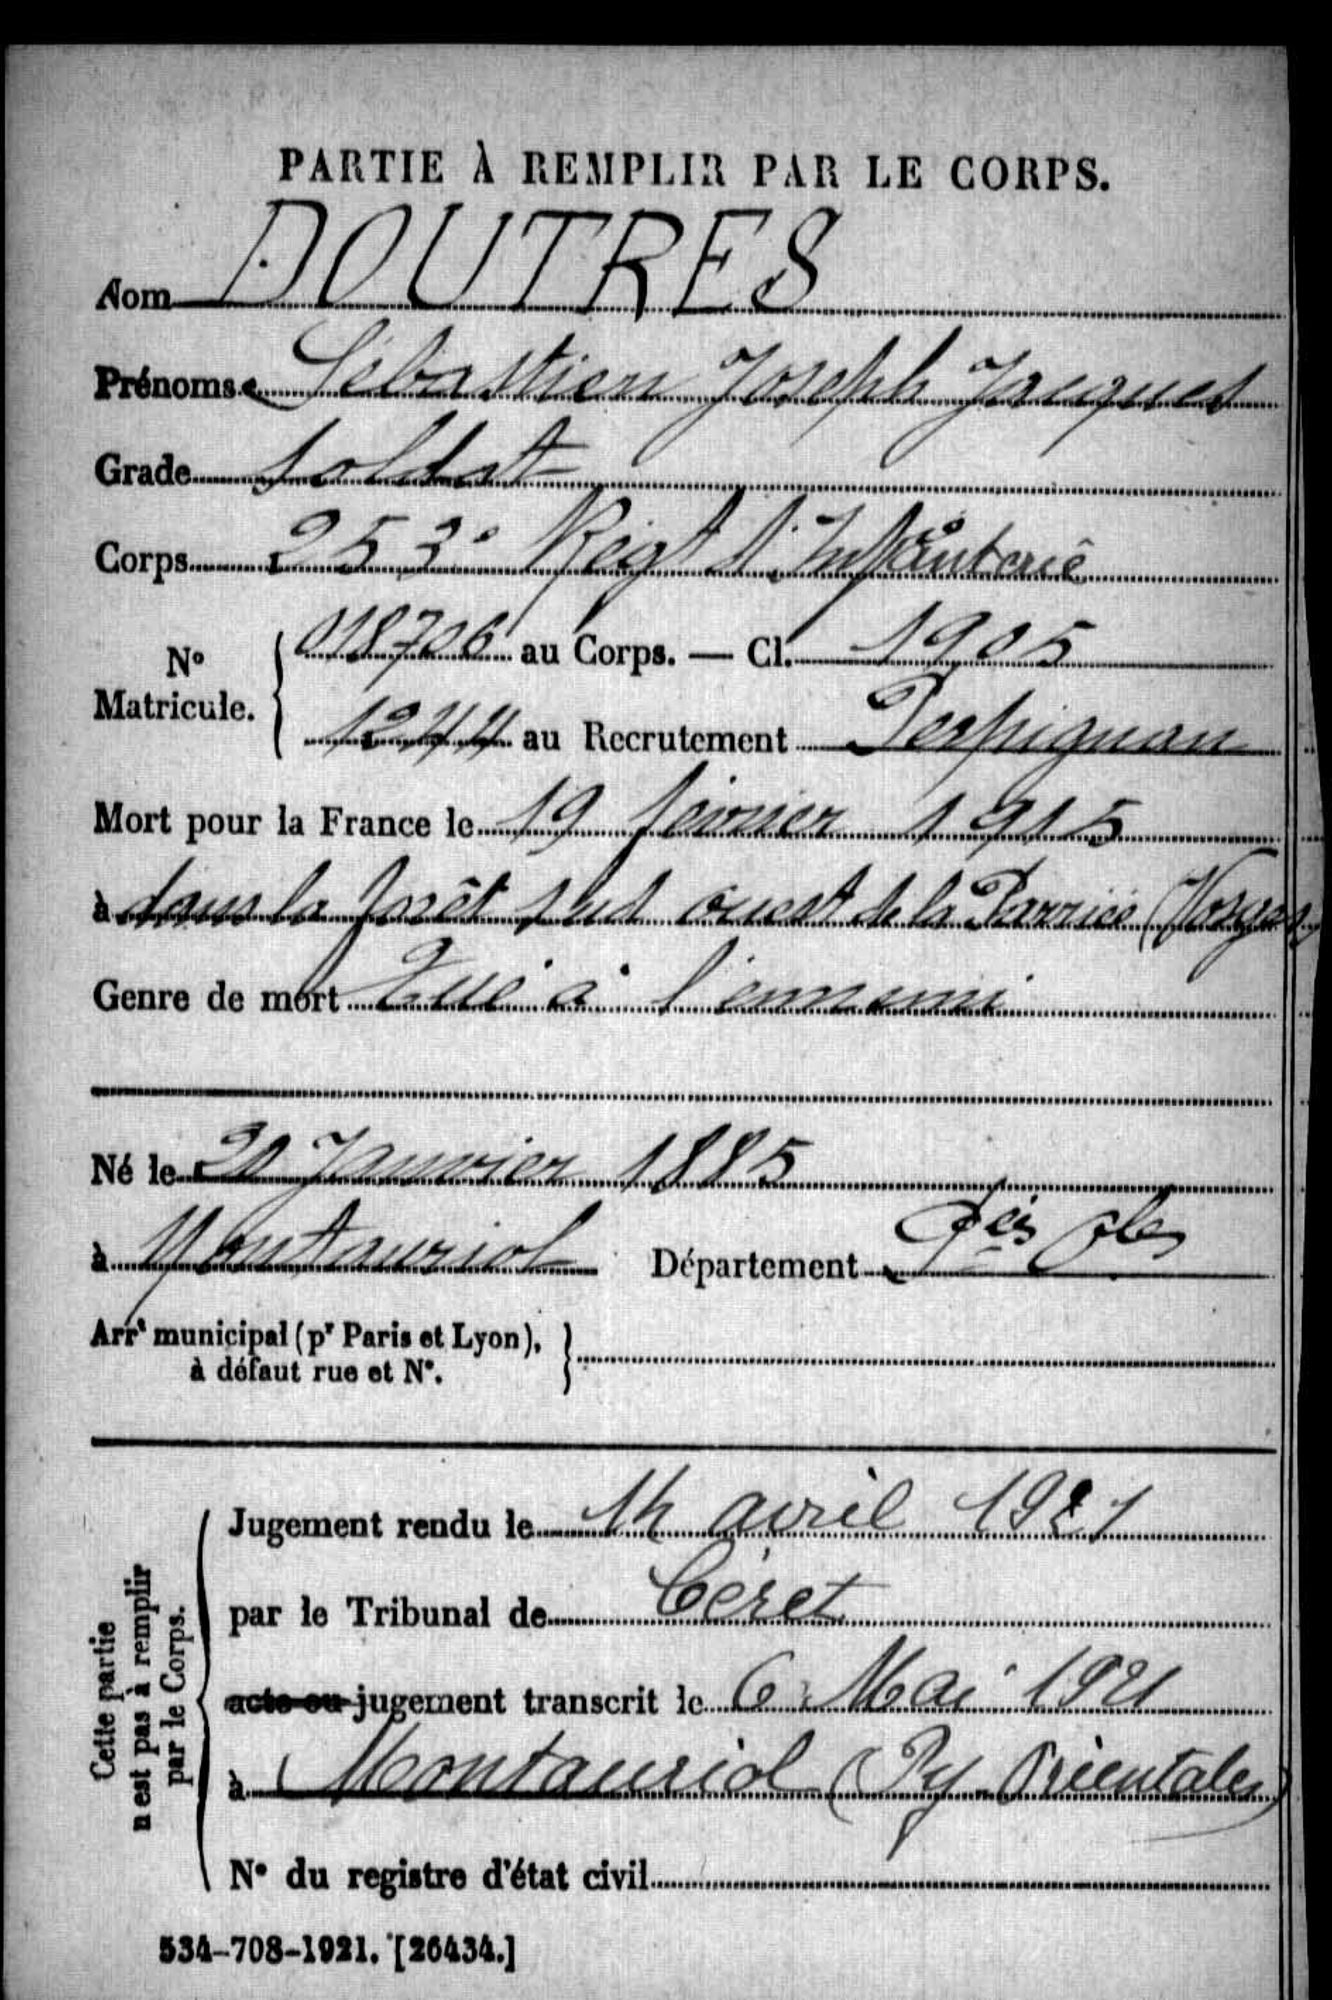 PARTIE À REMPLIR PAR LE CORPS.
Nom DOUTRES
Prénoms Sébastien Joseph Jacques
Grade soldat
Corps 253e Régt d'Infanterie
No Matricule. 018706 au Corps. — Cl. 1905
1244 au Recrutement Perpignan
Mort pour la France le 19 février 1915
à dans la forêt sud ouest de la (Vosges)
Genre de mort Tué à l'ennemi
Né le 20 Janvier 1885
à Montauriol Département Pées Oles
Arrt municipal (pr Paris et Lyon),
à défaut rue et N°.
Cette partie
n'est pas à remplir
par le Corps.
Jugement rendu le 14 avril 1921
par le Tribunal de Céret
acte ou jugement transcrit le 6 Mai 1921
à Montauriol (Py. Orientales)
N° du registre d'état civil
534-708-1921. [26434.]